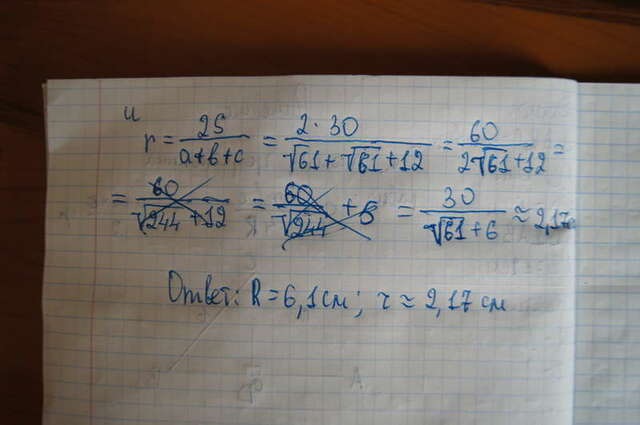 и
r = 2S/(a+b+c) = 2·30/(√61+√61+12) = 60/(2√61+12) =
= 60/(√244+12) = 60/√244 + 6 = 30/(√61+6) ≈ 2,17с
Ответ: R = 6,1см; r ≈ 2,17 см